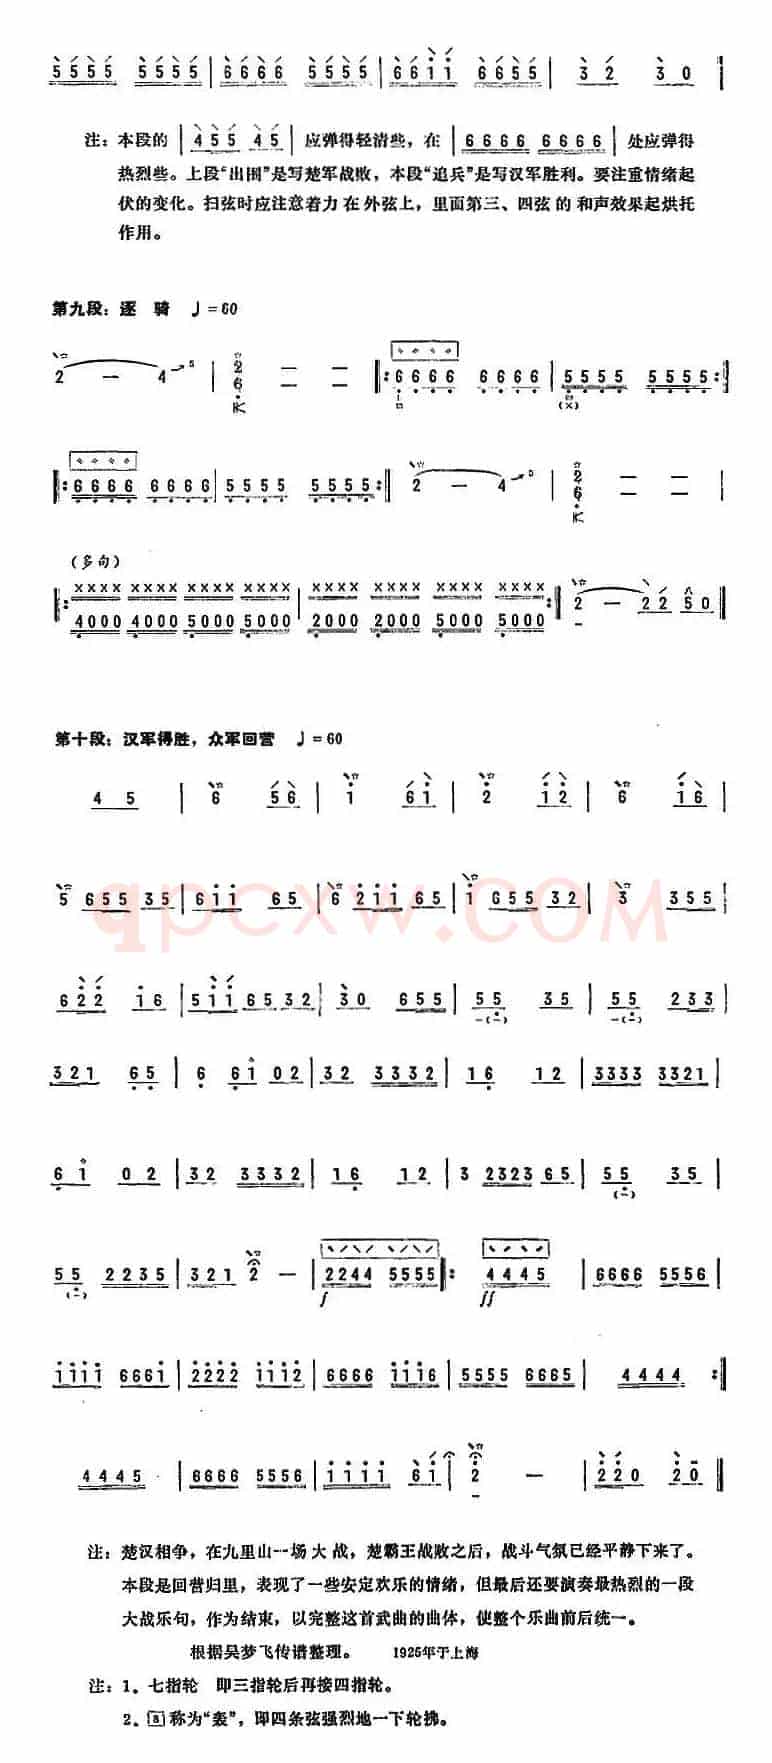 5555 5555 | 6666 5555 | 66ii 6655 | 32 30 |
注：本段的 | 455 45 | 应弹得轻清些，在 | 6666 6666 | 处应弹得
热烈些。上段“出围”是写楚军战败，本段“追兵”是写汉军胜利。要注重情绪起
伏的变化。扫弦时应注意着力在外弦上，里面第三、四弦的和声效果起烘托
作用。
第九段：逐 骑 ♩=60
2 — 4 5 | 2 6 — — |: 6666 6666 | 5555 5555 :|
|: 6666 6666 | 5555 5555 :| 2 — 4 5 | 2 6 — — |
(多句)
|: XXXX XXXX XXXX XXXX | XXXX XXXX XXXX XXXX :| 2 — 22 50 |
4000 4000 5000 5000 | 2000 2000 5000 5000
第十段：汉军得胜，众军回营 ♩=60
45 | 6 56 | i 6i | 2 i2 | 6 i6 |
5 655 35 | 6ii 65 | 6 2ii 65 | i 655 32 | 3 355 |
qpcxw.COM
622 i6 | 5ii 65 32 | 30 655 | 55 35 | 55 233 |
321 65 | 6 6i 02 | 32 3332 | 16 12 | 3333 3321 |
6i 02 | 32 3332 | 16 12 | 3 2323 65 | 55 35 |
55 2235 | 321 2 — | 2244 5555 |: 4445 | 6666 5556 |
f ff
iiii 666i | 2222 iii2 | 6666 iii6 | 5555 6665 | 4444 :|
4445 | 6666 5556 | iiii 6i | 2 — | 220 20 ||
注：楚汉相争，在九里山一场大战，楚霸王战败之后，战斗气氛已经平静下来了。
本段是回营归里，表现了一些安定欢乐的情绪，但最后还要演奏最热烈的一段
大战乐句，作为结束，以完整这首武曲的曲体，使整个乐曲前后统一。
根据吴梦飞传谱整理。 1925年于上海
注：1。七指轮 即三指轮后再接四指轮。
2。称为“轰”，即四条弦强烈地一下轮拂。